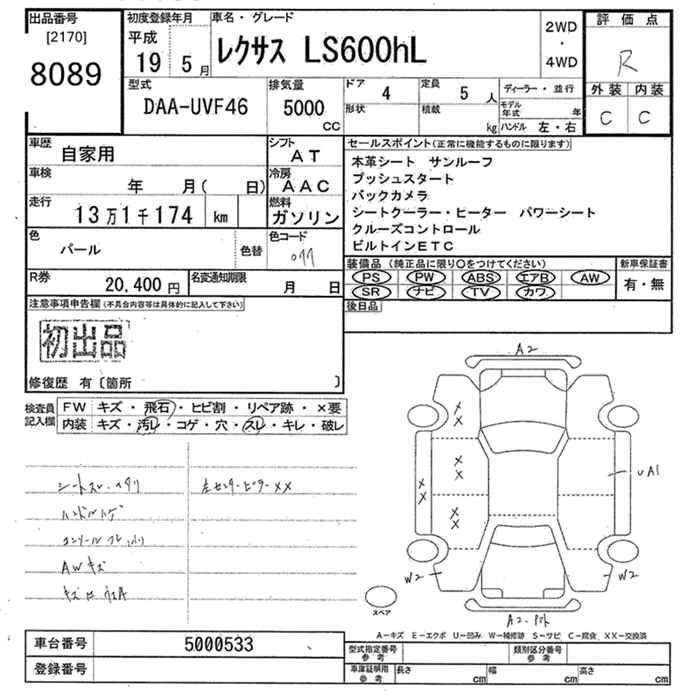 出品番号
[2170]
8089
初度登録年月
平成
19 5 月
車名・グレード
レクサス LS600hL
2WD
・
4WD
評価点
R
外装 内装
C C
型式
DAA-UVF46
排気量
5000
CC
ドア 4
形状
定員 5 人
積載 kg
ディーラー・並行
モデル年式 年
ハンドル 左・右
車歴
自家用
シフト
AT
車検
年 月( 日)
冷房
AAC
走行
13万1千174 km
燃料
ガソリン
色
パール
色替
色コード
077
R券
20,400 円
名変通知期限
月 日
セールスポイント(正常に機能するものに限ります)
本革シート サンルーフ
プッシュスタート
バックカメラ
シートクーラー・ヒーター パワーシート
クルーズコントロール
ビルトインETC
装備品(純正品に限り○をつけてください)
PS PW ABS エアB AW
SR ナビ TV カワ
新車保証書
有・無
後日品
注意事項申告欄(不具合内容等は具体的に記入して下さい)
初出品
修復歴 有〔箇所 〕
検査員
記入欄
FW キズ・飛石・ヒビ割・リペア跡・×要
内装 キズ・汚レ・コゲ・穴・スレ・キレ・破レ
シートスレ・
左センターピラーXX
ハンドルハゲ
AWキズ
A2
X
X
X
X
X
X
X
X
UA1
W2
W2
スペア
A2・
A-キズ E-エクボ U-凹み W-補修跡 S-サビ C-腐食 XX-交換済
車台番号
5000533
登録番号
型式指定番号
参考
類別区分番号
参考
車庫証明用
参考
長さ cm
幅 cm
高さ cm